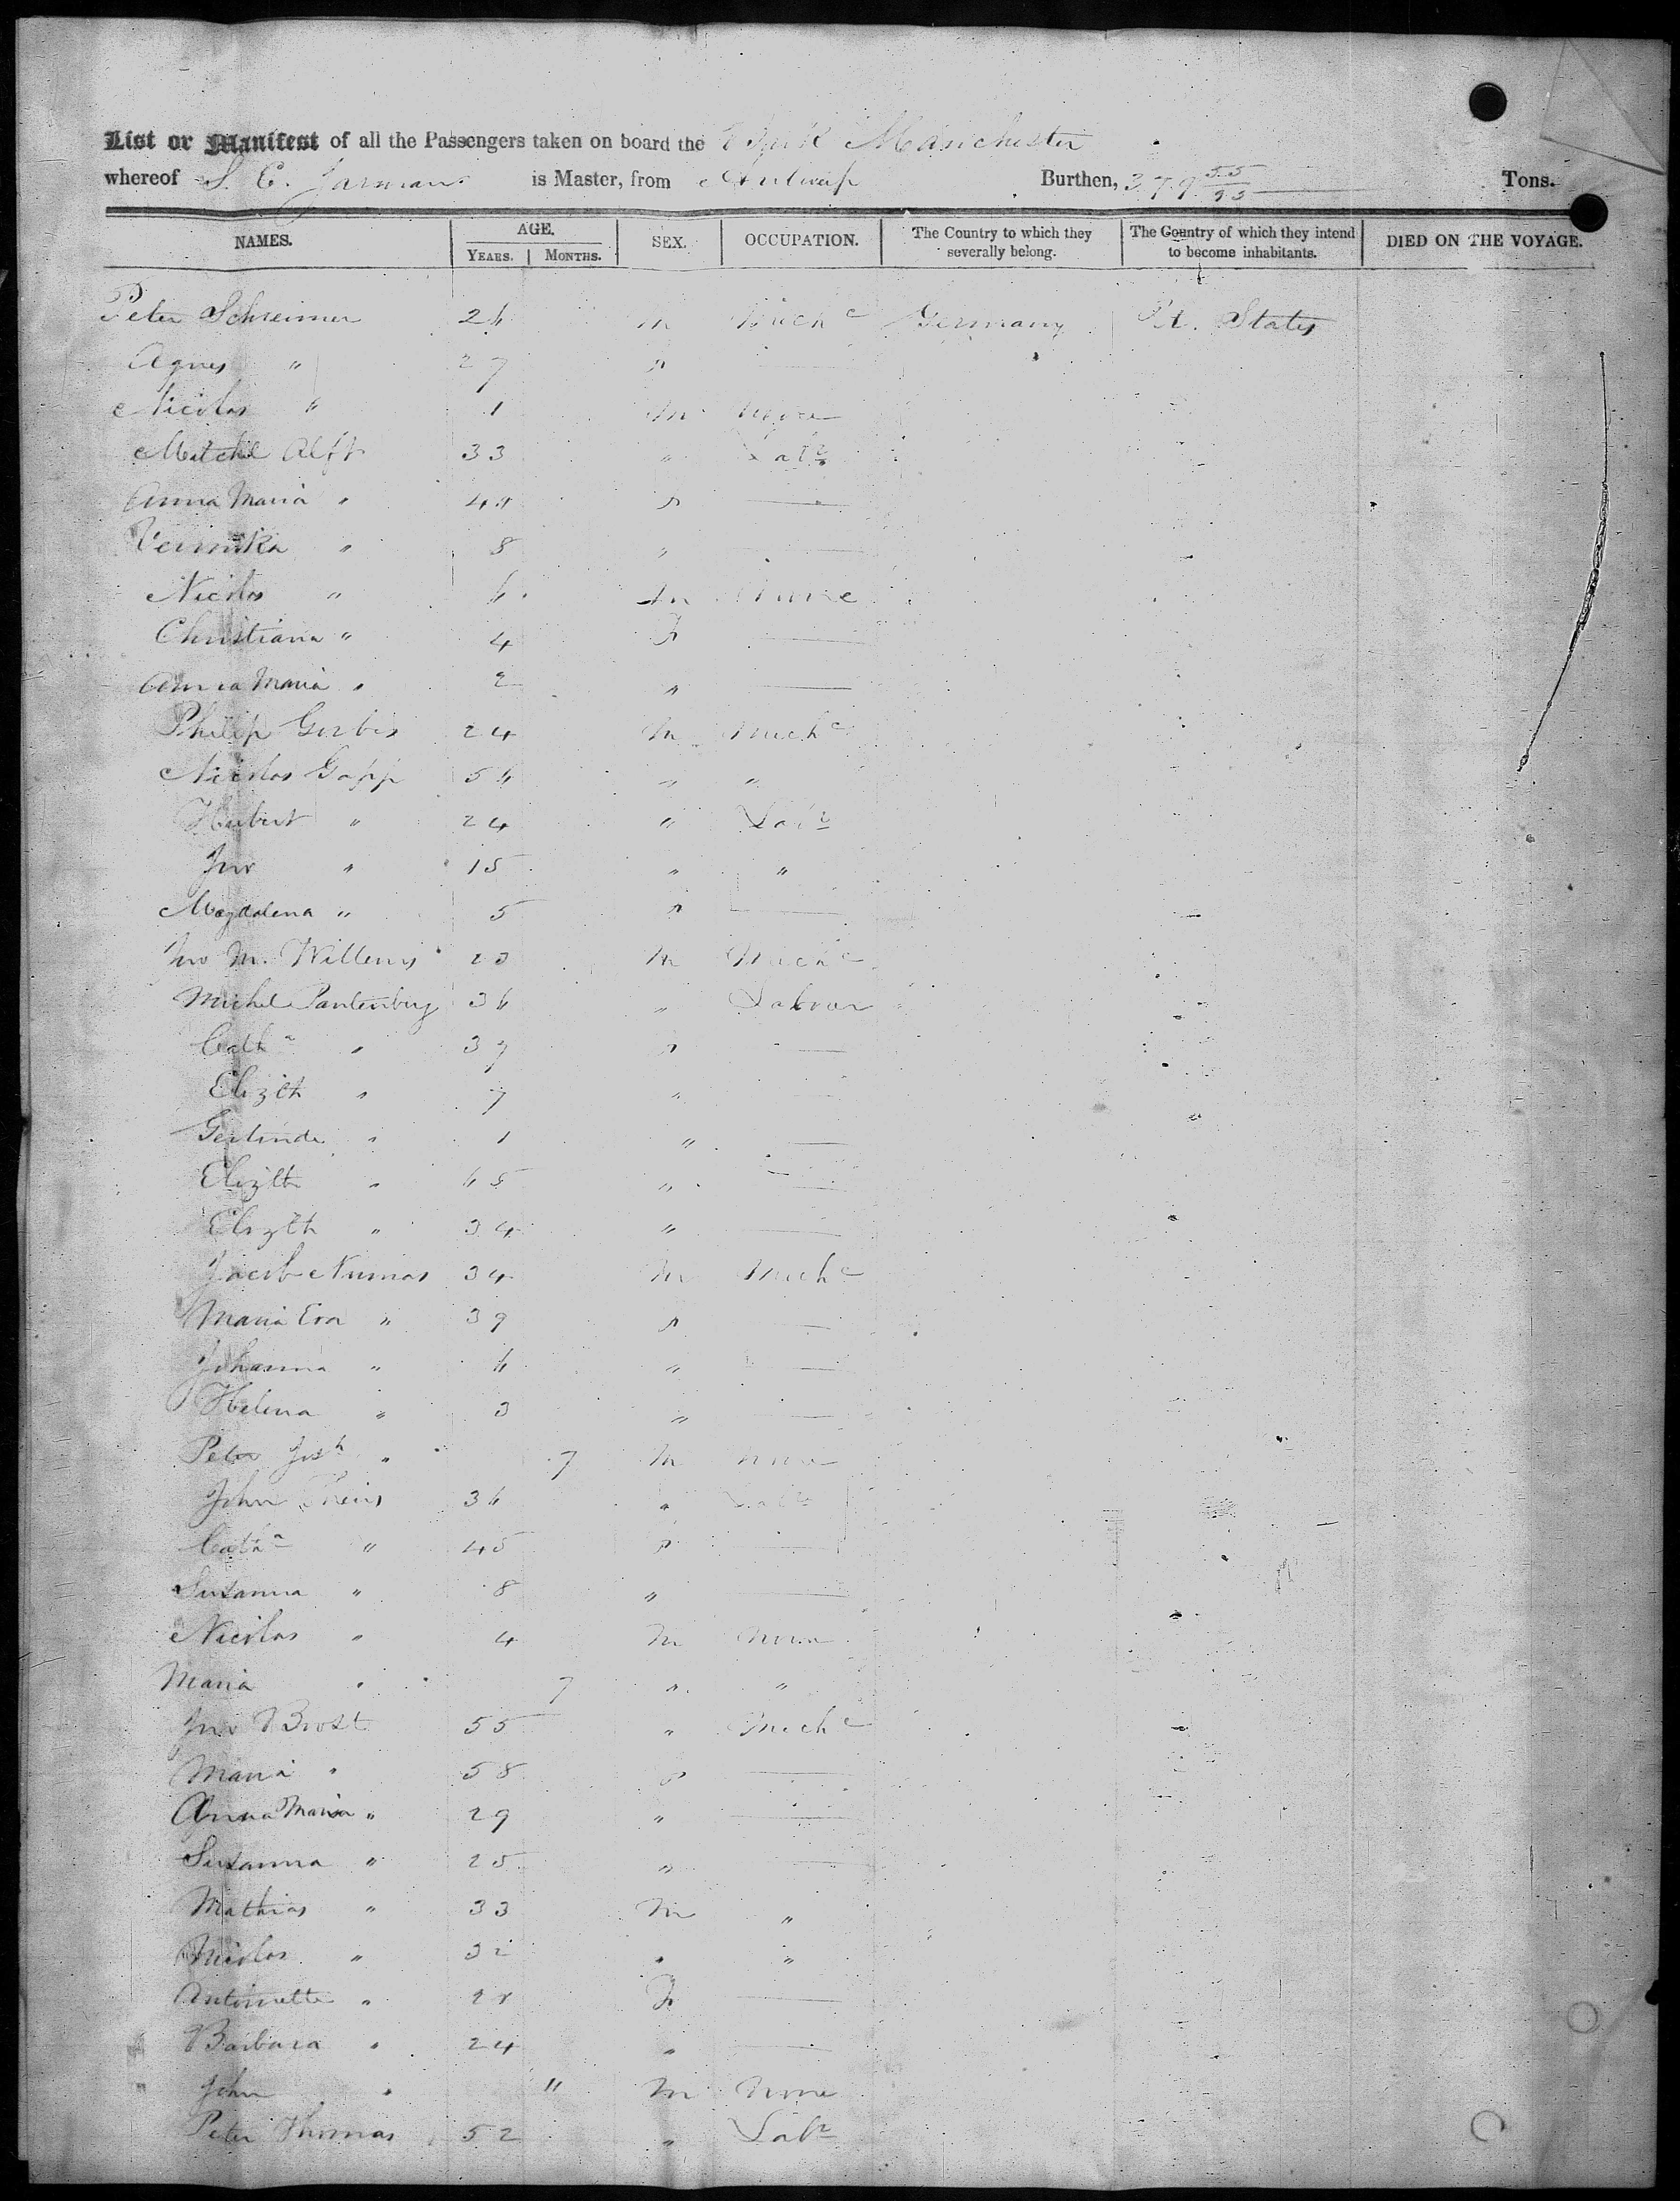 List or Manifest of all the Passengers taken on board the Manchester
whereof S. E. Jarman is Master, from Antwerp Burthen, 379 55/95 Tons.
NAMES. AGE. YEARS. MONTHS. SEX. OCCUPATION. The Country to which they severally belong. The Country of which they intend to become inhabitants. DIED ON THE VOYAGE.
Peter Schreimer 26 m Mechc Germany Ud. States
Agnes " 27 F
Nicolas " 1 m none
Mitchel Alff 33 " Labr
Anna Maria " F
Veronika " 8 "
Nicolas " 6 m none
Christiana " 4 F
Anna Maria " 2 "
Philip 24 m Mechc
Nicolas Gapp 56 " "
Hubert " 24 " Labr
Jno " 15 " "
Magdalena " 5 F
Jno M. Willems 23 m Mechc
Michel Pantenburg 36 " Labour
Catha " 37 F
Elizth " 7 "
Gertrude " 1 "
Elizth " 65 "
Elizth " 34 "
Jacob Numas 34 m Mechc
Maria Eva " 39 F
Johanna " 6 "
Helena " 3 "
Peter Josh " 7 m none
John Theis 36 " Labr
Catha " 45 F
Susanna " 8 "
Nicolas " 4 m none
Maria " 7 " "
Jno Brost 55 " Mechc
Maria " 58 F
Anna Maria " 29 "
Susanna " 25 "
Mathias " 33 m "
Nicolas " 32 " "
Antoinette " 28 F
Barbara " 24 "
John " 11 m none
Peter Thomas 52 " Labr